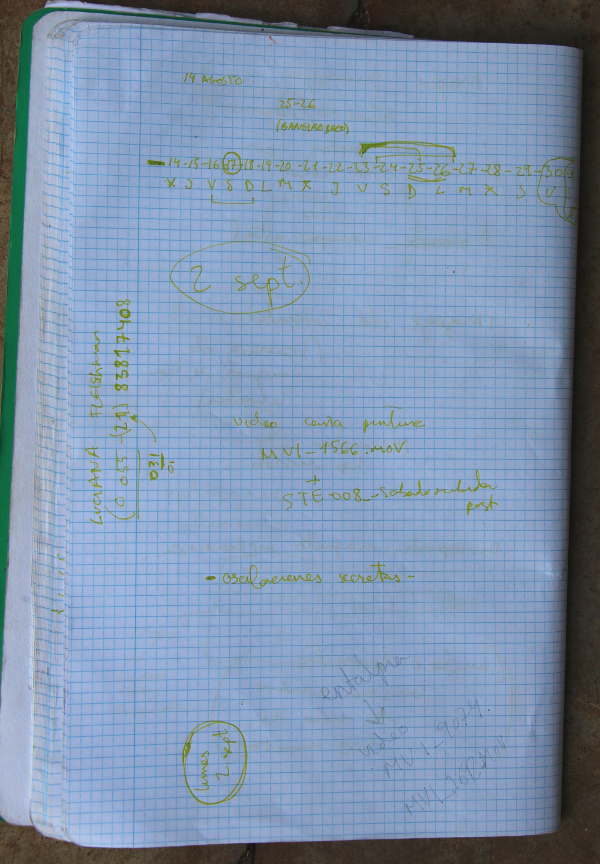 14 AGOSTO
25-26
14-15-16-17-18-19-20-21-22-23-24-25-26-27-28-29-30
X J V S D L M X J V S D L M X J V
2 sept.
LUCIANA
0 055 (21) 83817408
031
video caja pintura
MVI-1566.MOV
+
STE-008_-Sabado
post
- oscilaciones secretas -
entalpia
↓
video
MVI_9074.
lunes
2 sept